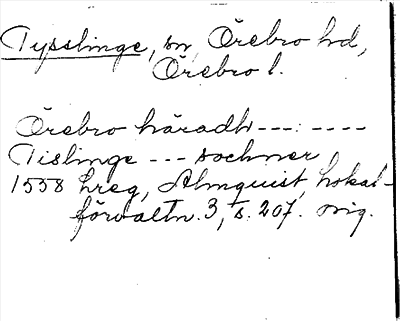 Tysslinge, sn, Örebro hd,
Örebro l.
Örebro häradh ---: ----
Tislinge --- sochner
1558 hreg, Almquist, Lokal-
förvaltn. 3, s. 207. orig.